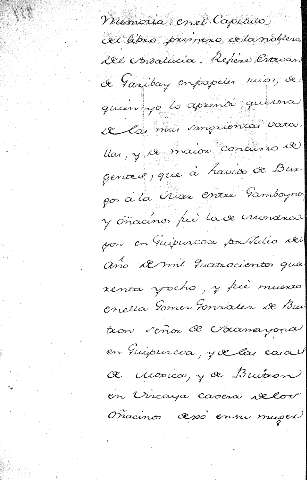 Memoria en el Capitulo
del libro primero de la nobleza
del Andalucia. Refiere Estevan
de Garibay en papeles suios, de
quien yo lo aprendi que una
de las mas sangrientas vata
llas, y de maior concurso de
gentes, que à havido de Bur
gos à la Mar entre Gamboynos
y Oñacinos fué la de Mondra
gon en Guipuzcoa por Julio del
Año de mil quatrocientos qua
renta y ocho, y fué muerto
en ella Gomez Gonzalez de Bu
tron Señor de Aramayona
en Guipuzcoa, y de las casas
de Moxica, y de Butron
en Vizcaya cavera de los
Oñacinos dexó en su muger